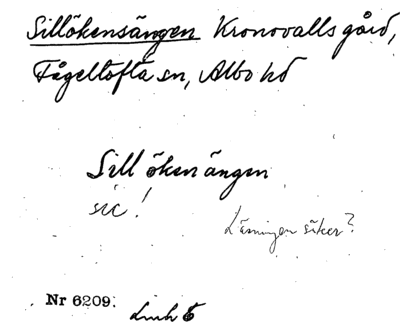 Sillökensängen Kronovalls gård,
Fågeltofta sn, Albo hd
Sill öken ängen
sic!
Läsningen säker?
Nr 6209.